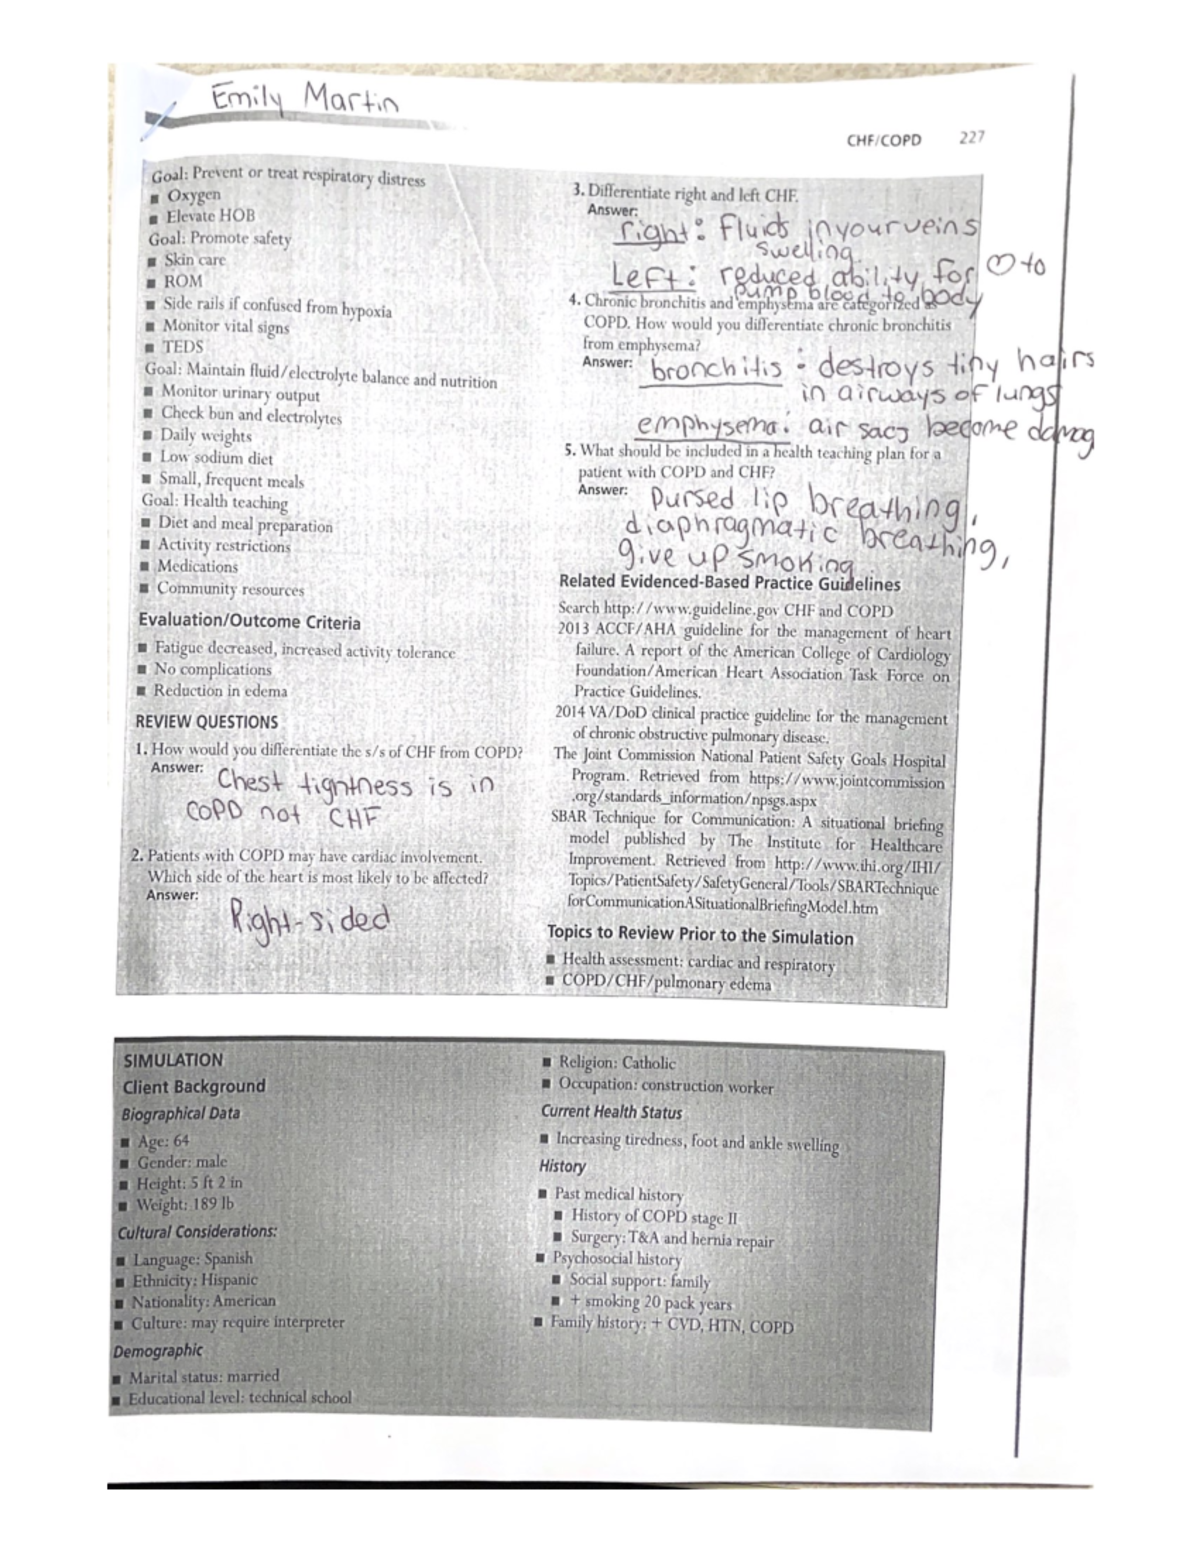 Emily Martin
CHF/COPD 227
Goal: Prevent or treat respiratory distress
■ Oxygen
■ Elevate HOB
Goal: Promote safety
■ Skin care
■ ROM
■ Side rails if confused from hypoxia
■ Monitor vital signs
■ TEDS
Goal: Maintain fluid/electrolyte balance and nutrition
■ Monitor urinary output
■ Check bun and electrolytes
■ Daily weights
■ Low sodium diet
■ Small, frequent meals
Goal: Health teaching
■ Diet and meal preparation
■ Activity restrictions
■ Medications
■ Community resources
Evaluation/Outcome Criteria
■ Fatigue decreased, increased activity tolerance
■ No complications
■ Reduction in edema
REVIEW QUESTIONS
1. How would you differentiate the s/s of CHF from COPD?
Answer: Chest tightness is in
COPD not CHF
2. Patients with COPD may have cardiac involvement.
Which side of the heart is most likely to be affected?
Answer:
Right-sided
3. Differentiate right and left CHF.
Answer:
right: Fluids in your veins
swelling
Left: reduced ability for ♡ to
pump blood to body
4. Chronic bronchitis and emphysema are categorized as
COPD. How would you differentiate chronic bronchitis
from emphysema?
Answer: bronchitis: destroys tiny hairs
in airways of lungs
emphysema: air sacs become damag
5. What should be included in a health teaching plan for a
patient with COPD and CHF?
Answer: Pursed lip breathing,
diaphragmatic breathing,
give up smoking
Related Evidenced-Based Practice Guidelines
Search http://www.guideline.gov CHF and COPD
2013 ACCF/AHA guideline for the management of heart
failure. A report of the American College of Cardiology
Foundation/American Heart Association Task Force on
Practice Guidelines.
2014 VA/DoD clinical practice guideline for the management
of chronic obstructive pulmonary disease.
The Joint Commission National Patient Safety Goals Hospital
Program. Retrieved from https://www.jointcommission
.org/standards_information/npsgs.aspx
SBAR Technique for Communication: A situational briefing
model published by The Institute for Healthcare
Improvement. Retrieved from http://www.ihi.org/IHI/
Topics/PatientSafety/SafetyGeneral/Tools/SBARTechnique
forCommunicationASituationalBriefingModel.htm
Topics to Review Prior to the Simulation
■ Health assessment: cardiac and respiratory
■ COPD/CHF/pulmonary edema
SIMULATION
Client Background
Biographical Data
■ Age: 64
■ Gender: male
■ Height: 5 ft 2 in
■ Weight: 189 lb
Cultural Considerations:
■ Language: Spanish
■ Ethnicity: Hispanic
■ Nationality: American
■ Culture: may require interpreter
Demographic
■ Marital status: married
■ Educational level: technical school
■ Religion: Catholic
■ Occupation: construction worker
Current Health Status
■ Increasing tiredness, foot and ankle swelling
History
■ Past medical history
■ History of COPD stage II
■ Surgery: T&A and hernia repair
■ Psychosocial history
■ Social support: family
■ + smoking 20 pack years
■ Family history: + CVD, HTN, COPD